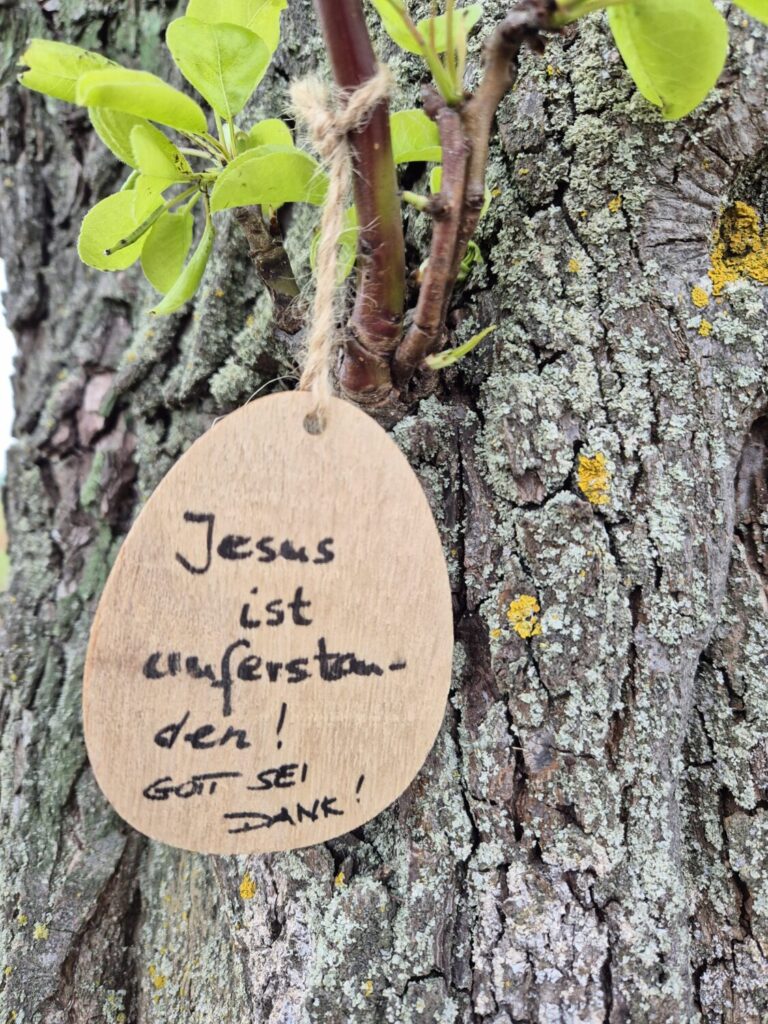 Jesus
ist
auferstan-
den!
GOTT SEI
DANK!